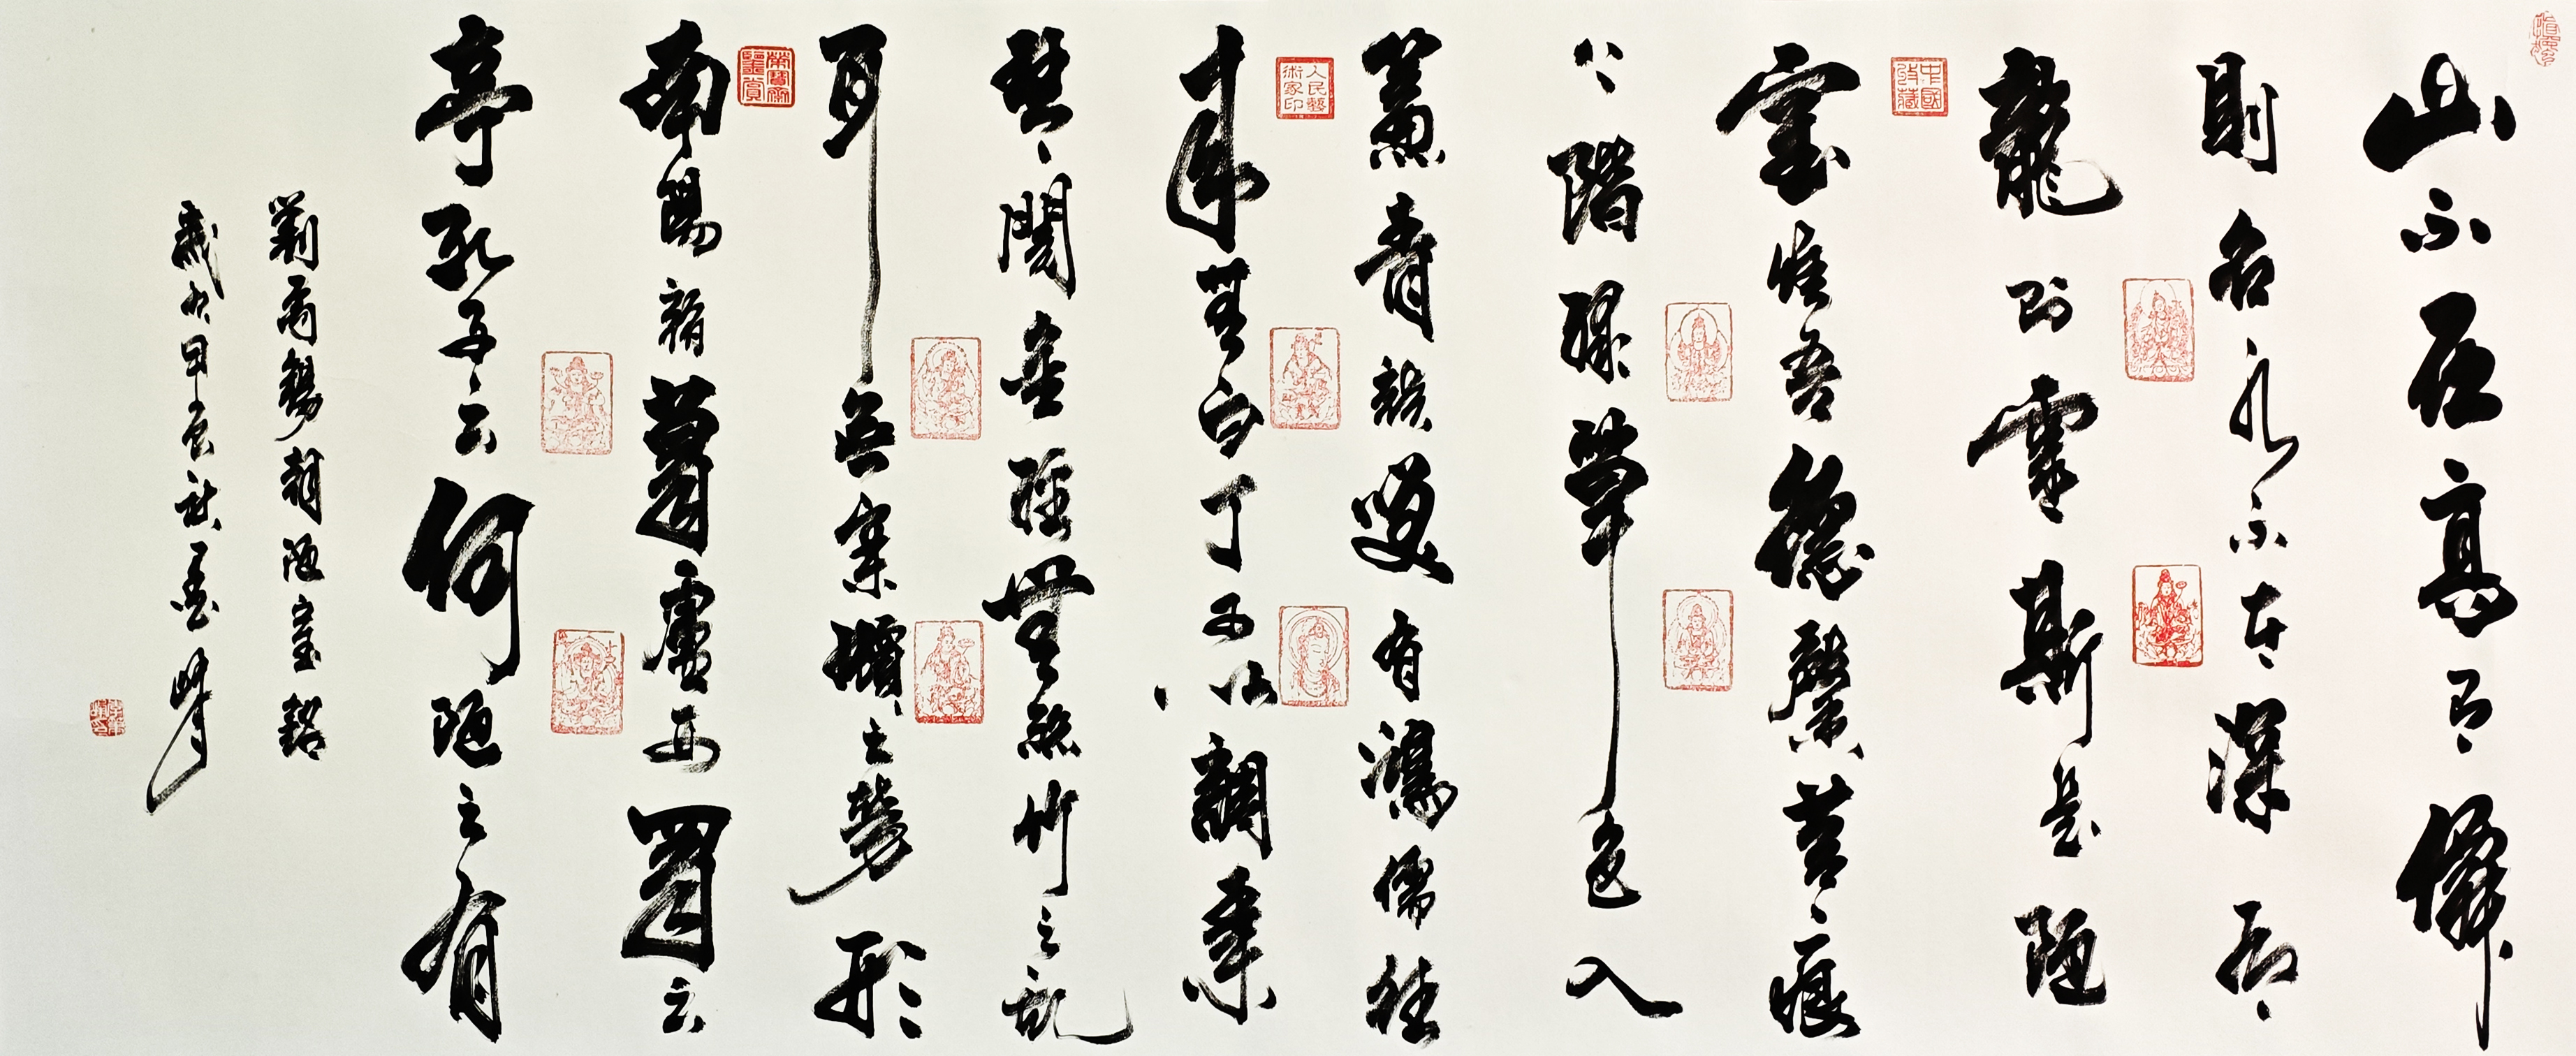 山不在高有僊
則名水不在深有
龍則靈斯是陋
室惟吾德馨苔痕
上階綠草色入
簾青談笑有鴻儒往
来無白丁可以調素
琴閱金經無絲竹之亂
耳無案牘之勞形
南陽諸葛廬西蜀云
亭孔子云何陋之有
劉禹錫陋室銘
歲次甲辰秋墨峰
中國收藏
人民藝術家印
榮寶齋鑒賞